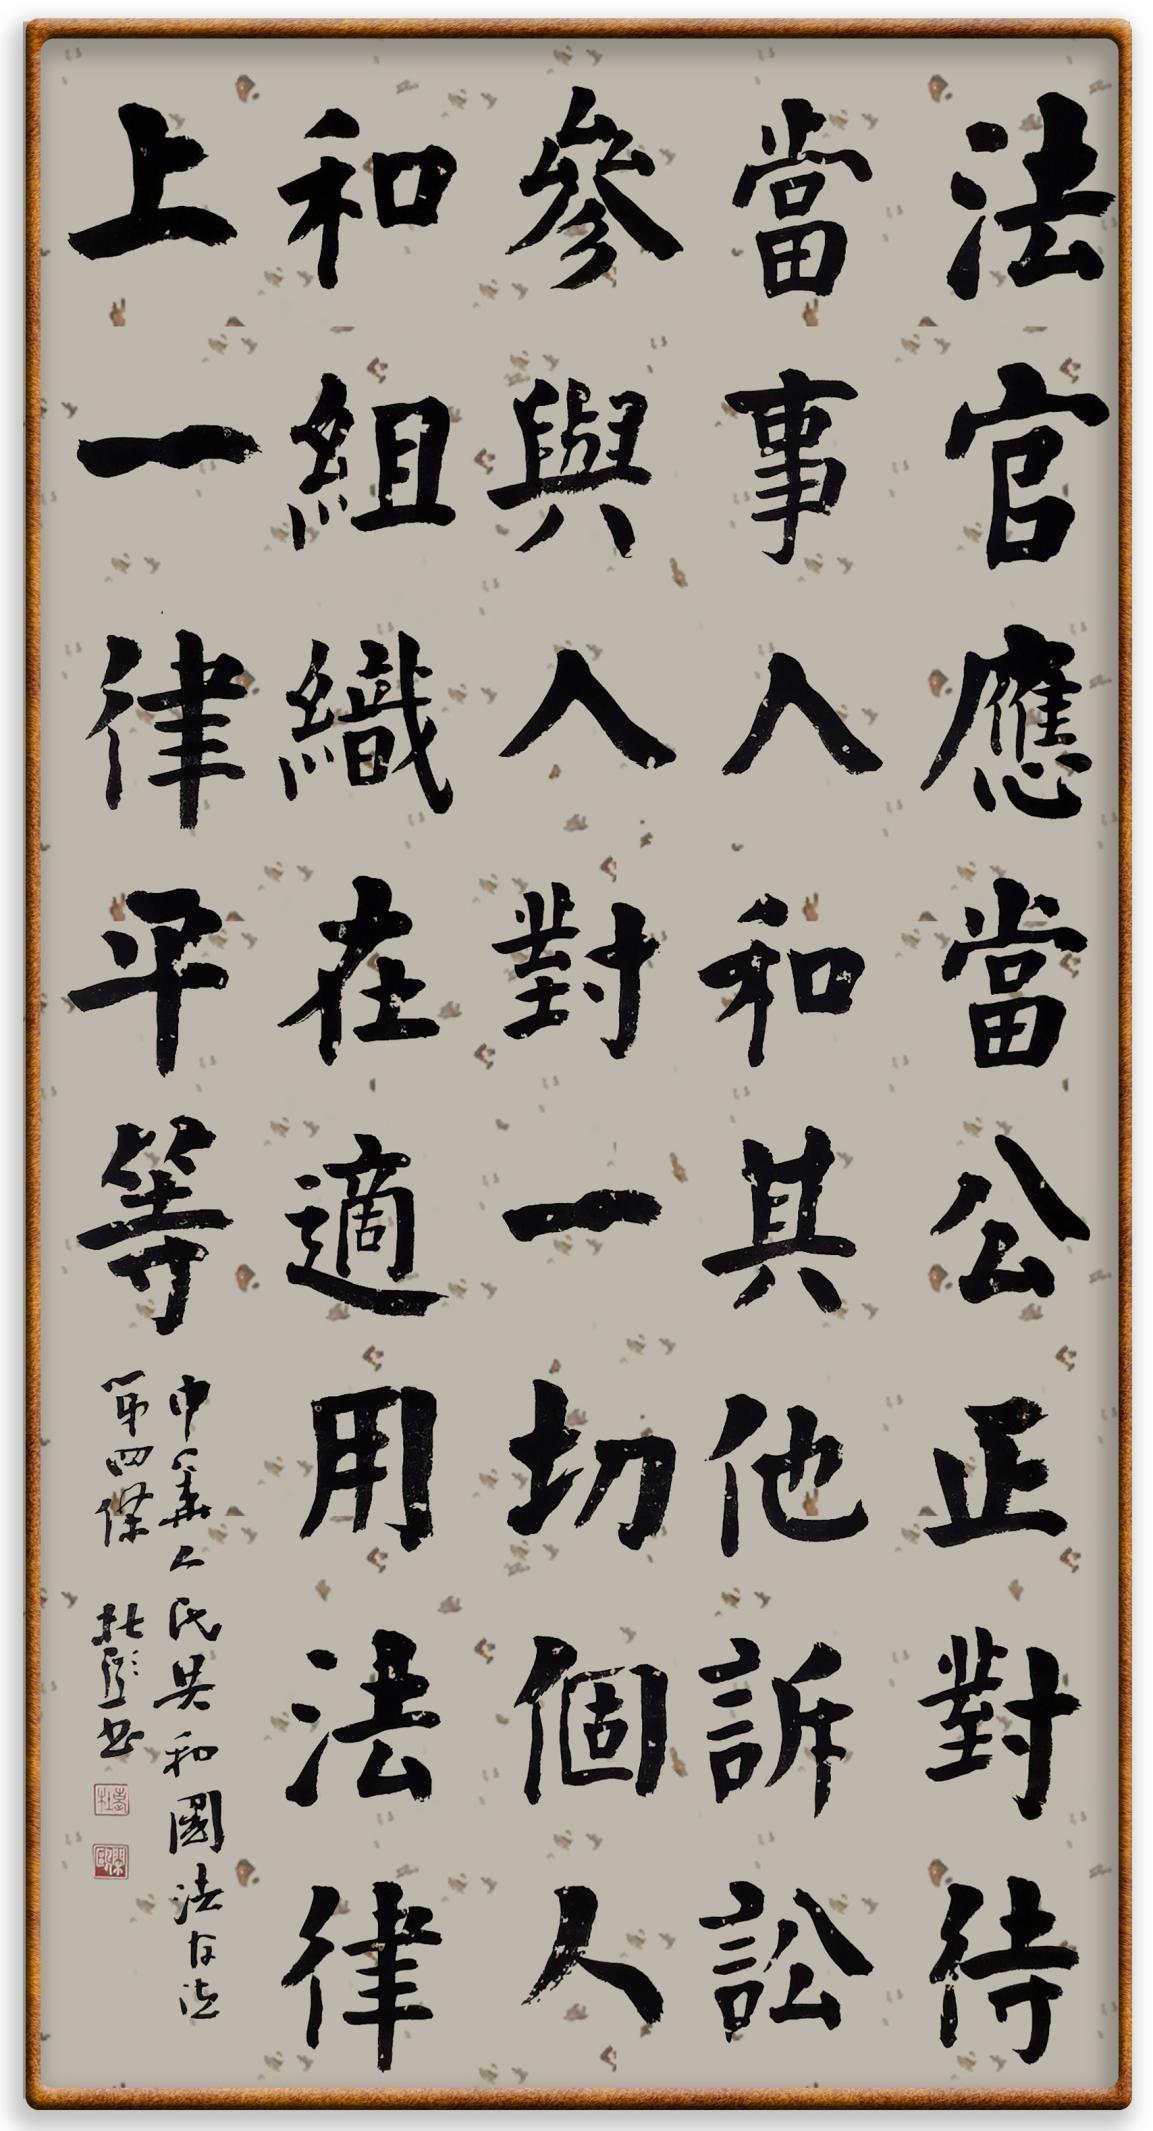 法官應當公正對待
當事人和其他訴訟
參與人對一切個人
和組織在適用法律
上一律平等
中華人民共和國法官法
第四條
杜
書